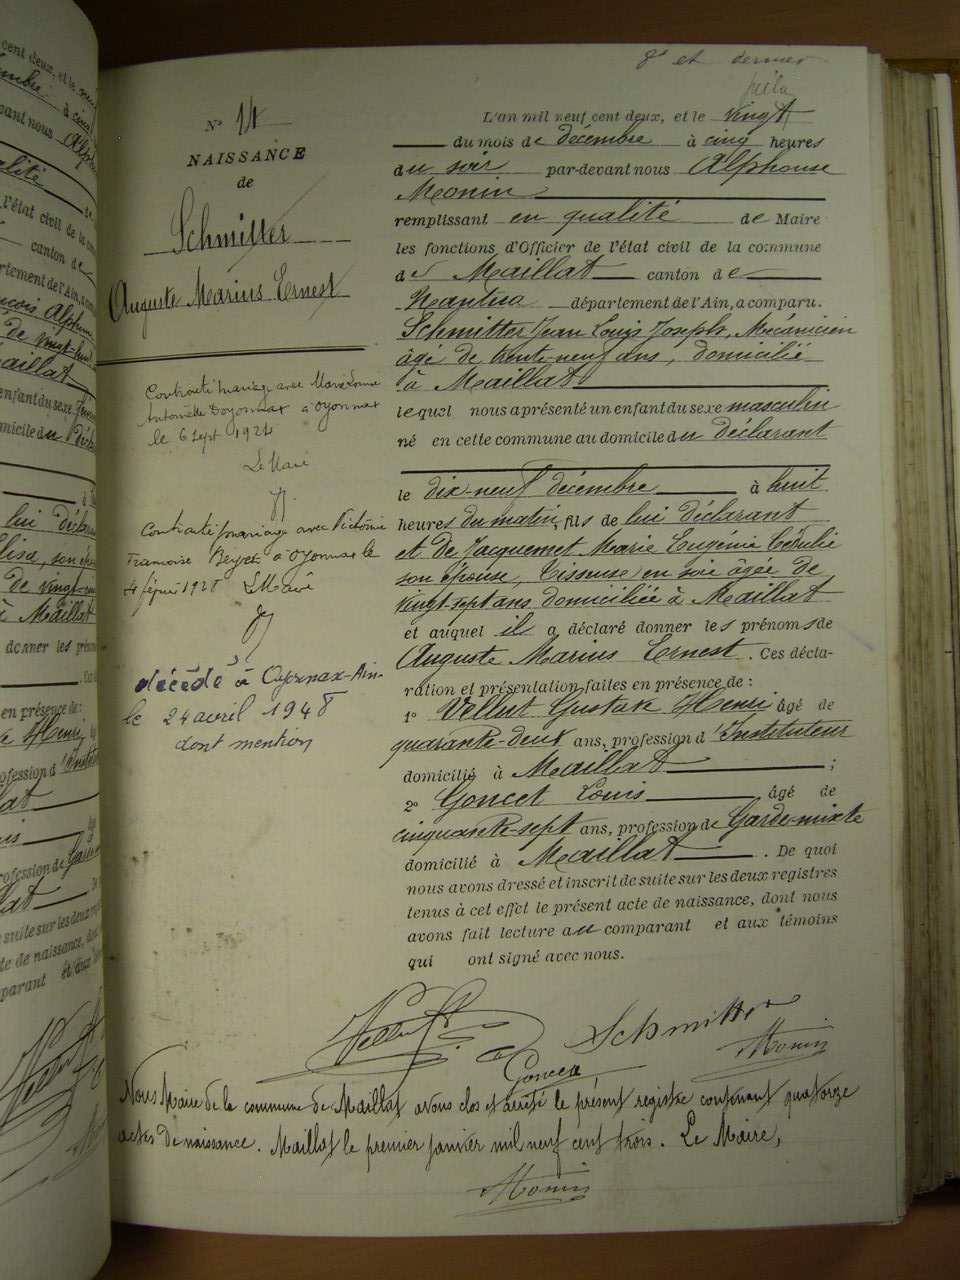 8e et dernier
N° 14
NAISSANCE
de
Schmitter
Auguste Marius Ernest
Contracté mariage avec Marie
Antoinette Doyonnax à Oyonnax
le 6 Sept 1924
Le Maire
Contracté mariage avec Victorine
Françoise à Oyonnax le
4 février 1928 Le Maire
décédé à Oyonnax-Ain-
le 24 avril 1948
dont mention
L'an mil neuf cent deux, et le vingt
du mois de décembre à cinq heures
du soir par-devant nous Alphonse
Monin
remplissant en qualité de Maire
les fonctions d'Officier de l'état civil de la commune
de Maillat canton de
Nantua département de l'Ain, a comparu.
Schmitter Jean Louis Joseph, Mécanicien
âgé de trente-neuf ans, domicilié
à Maillat
lequel nous a présenté un enfant du sexe masculin
né en cette commune au domicile du déclarant
le dix-neuf décembre à huit
heures du matin, fils de lui déclarant
et de Jacquemet Marie Eugénie Cérulie
son épouse, Tisseuse en soie âgée de
vingt-sept ans domiciliée à Maillat
et auquel il a déclaré donner les prénoms de
Auguste Marius Ernest. Ces décla-
ration et présentation faites en présence de :
1° Velluit Gustave Henri âgé de
quarante-deux ans, profession d'Instituteur
domicilié à Maillat ;
2° Goncet Louis âgé de
cinquante-sept ans, profession de Garde-mixte
domicilié à Maillat. De quoi
nous avons dressé et inscrit de suite sur les deux registres
tenus à cet effet le présent acte de naissance, dont nous
avons fait lecture au comparant et aux témoins
qui ont signé avec nous.
Schmitter
Goncet
Monin
Nous Maire de la commune de Maillat avons clos et arrêté le présent registre contenant quatorze
actes de naissance. Maillat le premier janvier mil neuf cent trois. Le Maire,
Monin